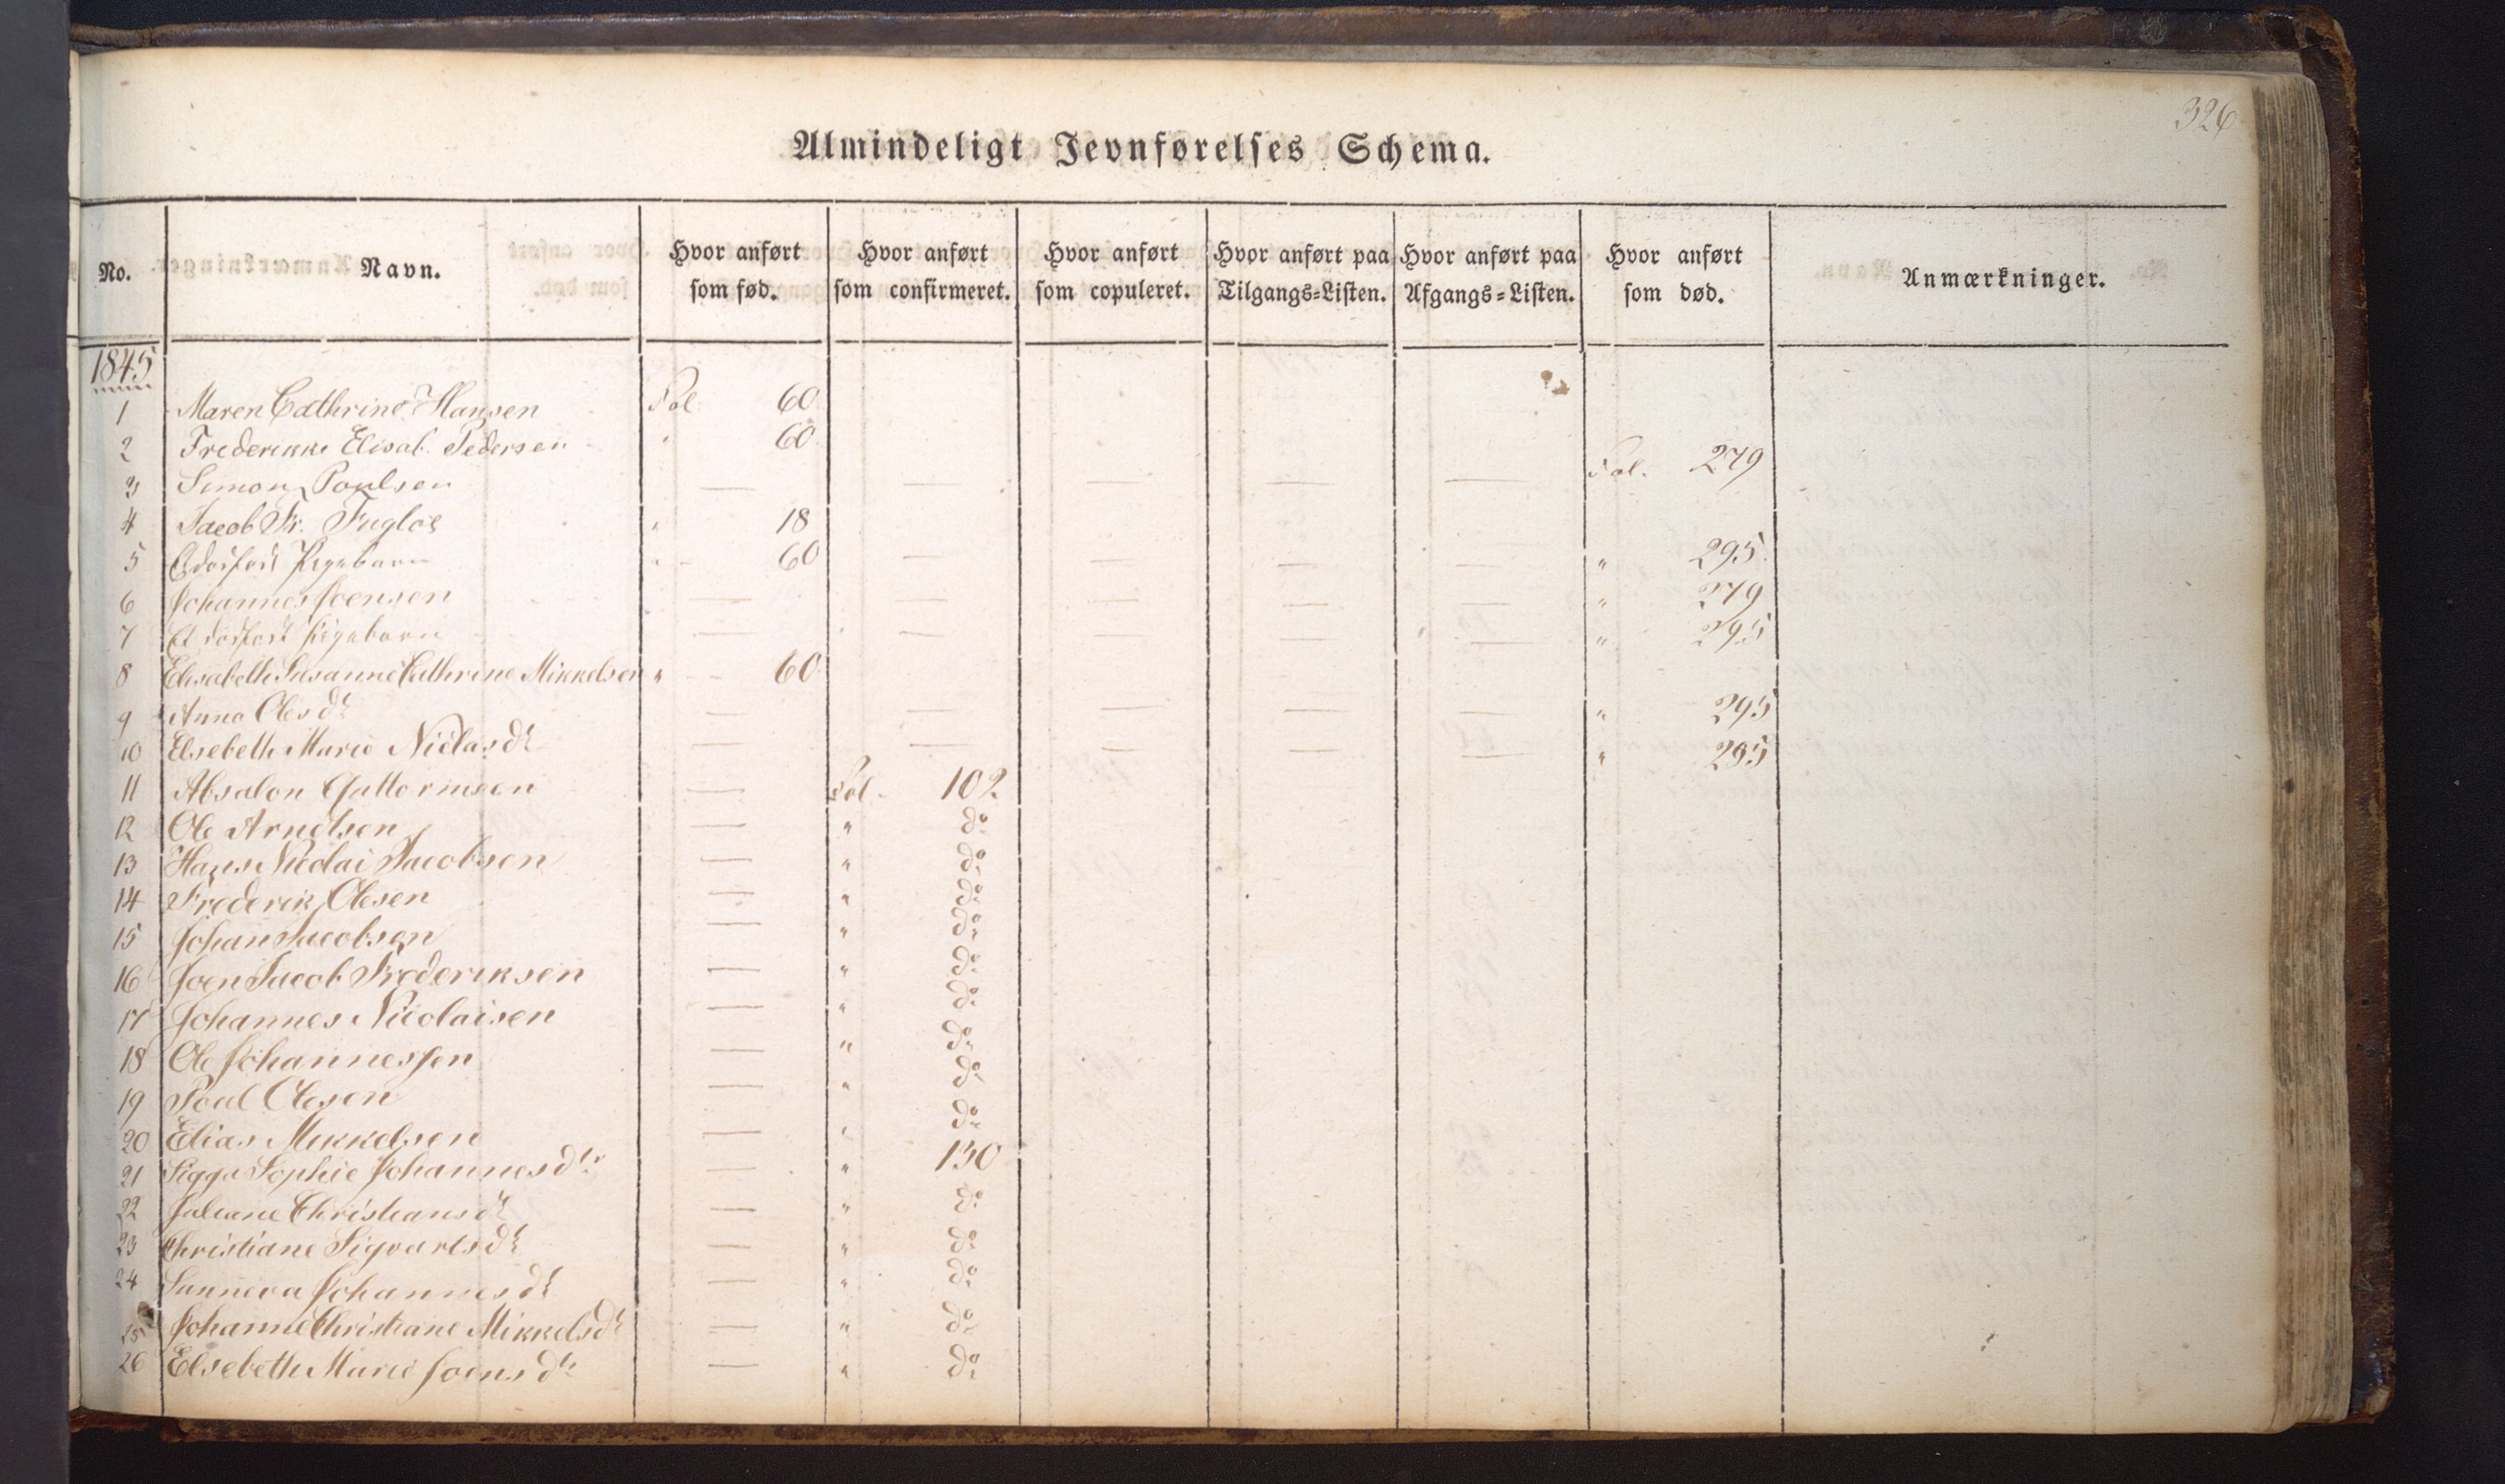 326
Almindeligt Jevnførelses Schema.
No. Navn. Hvor anført som fød. Hvor anført som confirmeret. Hvor anført som copuleret. Hvor anført paa Tilgangs=Listen. Hvor anført paa Afgangs=Listen. Hvor anført som død. Anmærkninger.
1845
1 Maren Cathrine Hansen Fol. 60
2 Frederikke Elisab. Pedersen " 60
3 Simon Poulsen — — — — — Fol. 279
4 Jacob Fr. Fugloe " 18
5 Et dødfødt Pigebarn " 60 — — — — " 295
6 Johannes Joensen — — — — — " 279
7 Et dødfødt Pigebarn — — — — — " 295
8 Elisabeth Susanne Cathrine Mikkelsen " 60
9 Anna Olesdt — — — — — " 295
10 Elsebeth Marie Niclasdt — — — — — " 295
11 Absalon Guttormsen — Fol. 102
12 Ole Arnolsen — " do
13 Hans Nicolai Jacobsen — " do
14 Frederik Olesen — " do
15 Johan Jacobsen — " do
16 Joen Jacob Frederiksen — " do
17 Johannes Nicolaisen — " do
18 Ole Johannessen — " do
19 Poul Olesen — " do
20 Elias Mikkelsen — " do
21 Sigga Sophie Johannesdtr — " 130
22 Juliane Christiansdt — " do
23 Christiane Sigvartsdt — " do
24 Sunneva Johannesdt — " do
25 Johanne Christiane Mikkelsdt — " do
26 Elsebeth Marie Joensdtr — " do